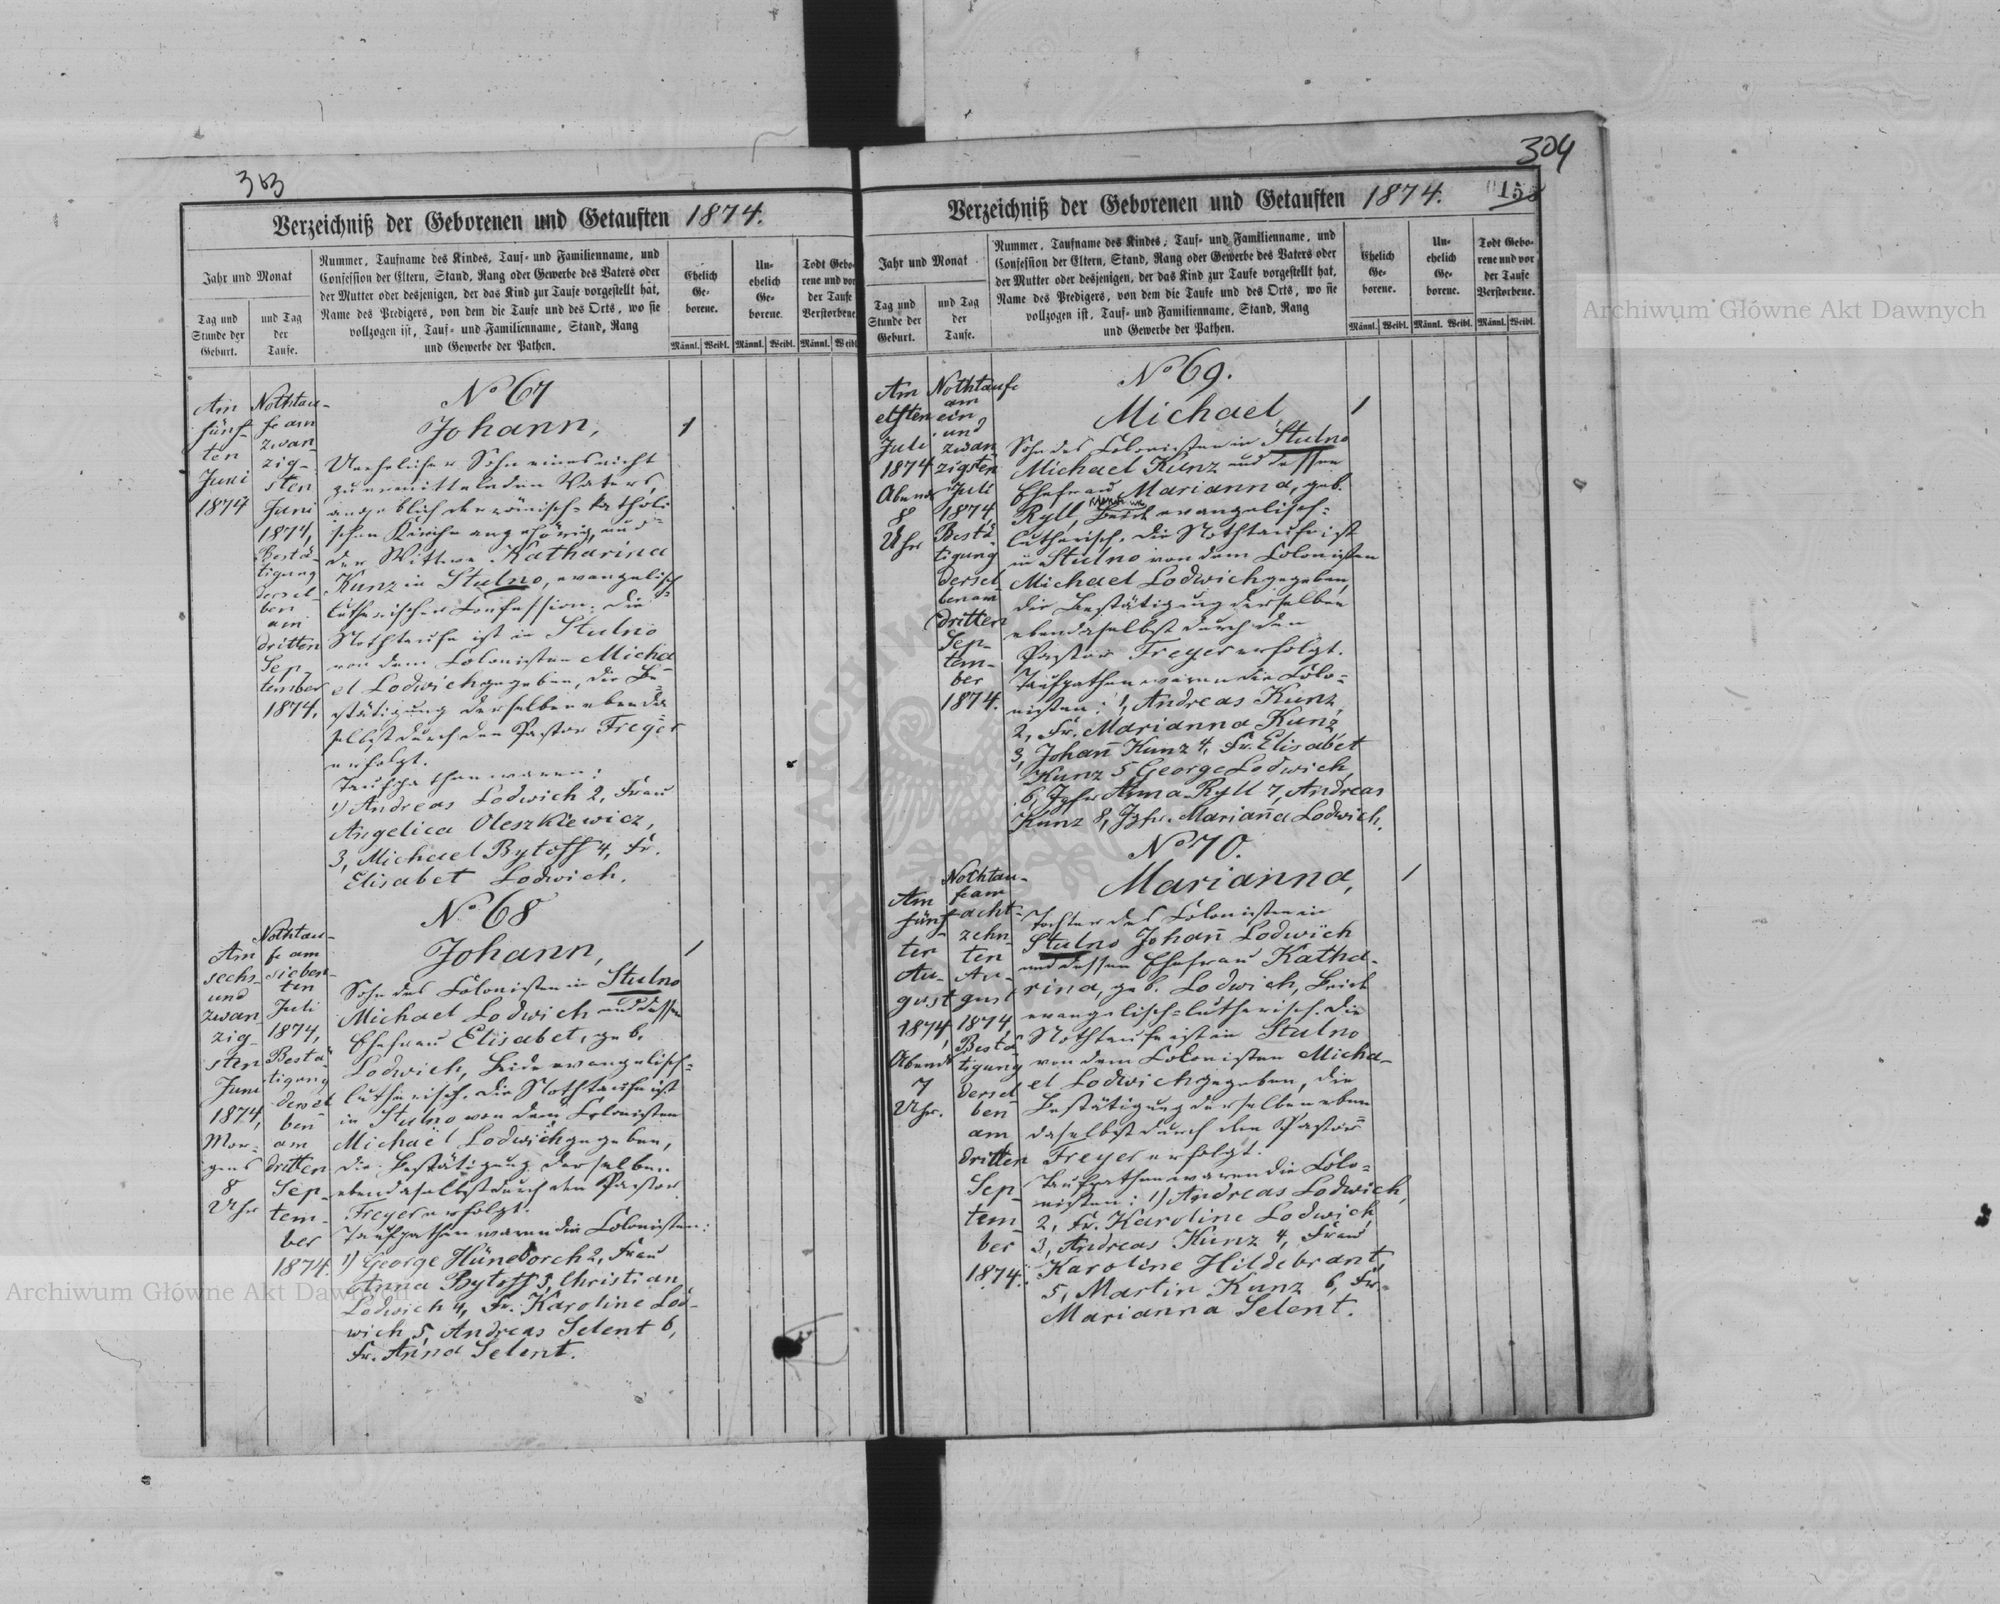 303
Verzeichniß der Geborenen und Getauften 1874.
Jahr und Monat
Tag und
Stunde der
Geburt.
und Tag
der
Taufe.
Nummer, Taufname des Kindes, Tauf- und Familienname, und
Confession der Eltern, Stand, Rang oder Gewerbe des Vaters oder
der Mutter oder desjenigen, der das Kind zur Taufe vorgestellt hat,
Name des Predigers, von dem die Taufe und des Orts, wo sie
vollzogen ist, Tauf- und Familienname, Stand, Rang
und Gewerbe der Pathen.
Ehelich
Ge-
borene.
Un-
ehelich
Ge-
borene.
Todt Gebo-
rene und vor
der Taufe
Verstorbene.
Männl. Weibl. Männl. Weibl. Männl. Weibl.
Am
fünf-
ten
Juni
1874
Nothtau-
fe am
zwan-
zig-
sten
Juni
1874,
Bestä-
tigung
dersel-
ben
am
dritten
Sep-
tember
1874.
No 67
Johann,
1
Unehelicher Sohn eines nicht
zu ermittelnden Vaters,
angeblich der römisch-katholi-
schen Kirche angehörig, und
der Wittwe Katharina
Kunz in Stulno, evangelisch-
lutherischer Confession. Die
Nothtaufe ist in Stulno
von dem Colonisten Micha-
el Lodwich gegeben, die Be-
stätigung derselben ebenda-
selbst durch den Pastor Freyer
erfolgt.
Taufpathen waren:
1) Andreas Lodwich 2, Frau
Angelica Oleszkiewicz,
3, Michael Bytoff 4, Fr.
Elisabet Lodwich.
Am
sechs-
und
zwan-
zig-
sten
Juni
1874,
Mor-
gens
8
Uhr
Nothtau-
fe am
sieben-
ten
Juli
1874,
Bestä-
tigung
dersel-
ben
am
dritten
Sep-
tem-
ber
1874.
No 68
Johann,
1
Sohn des Colonisten in Stulno
Michael Lodwich und dessen
Ehefrau Elisabet, geb.
Lodwich, beide evangelisch-
lutherisch. Die Nothtaufe ist
in Stulno von dem Colonisten
Michael Lodwich gegeben,
die Bestätigung derselben
ebendaselbst durch den Pastor
Freyer erfolgt.
Taufpathen waren die Colonisten:
1) George Hüneborch 2, Frau
Anna Bytoff 3, Christian
Lodwich 4, Fr. Karoline Lod-
wich 5, Andreas Selent 6,
Fr. Anna Selent.
304
Verzeichniß der Geborenen und Getauften 1874.
Jahr und Monat
Tag und
Stunde der
Geburt.
und Tag
der
Taufe.
Nummer, Taufname des Kindes, Tauf- und Familienname, und
Confession der Eltern, Stand, Rang oder Gewerbe des Vaters oder
der Mutter oder desjenigen, der das Kind zur Taufe vorgestellt hat,
Name des Predigers, von dem die Taufe und des Orts, wo sie
vollzogen ist, Tauf- und Familienname, Stand, Rang
und Gewerbe der Pathen.
Ehelich
Ge-
borene.
Un-
ehelich
Ge-
borene.
Todt Gebo-
rene und vor
der Taufe
Verstorbene.
Männl. Weibl. Männl. Weibl. Männl. Weibl.
Am
elften
Juli
1874
Abends
8
Uhr
Nothtaufe
am
ein
und
zwan
zigsten
Juli
1874
Bestä-
tigung
dersel-
ben am
dritten
Sep-
tem-
ber
1874.
No 69.
Michael
1
Sohn des Colonisten in Stulno
Michael Kunz und dessen
Ehefrau Marianna, geb.
Ryll, evangelisch-
lutherisch. Die Nothtaufe ist
in Stulno von dem Colonisten
Michael Lodwich gegeben,
die Bestätigung derselben
ebendaselbst durch den
Pastor Freyer erfolgt.
Taufpathen waren die Colo-
nisten: 1, Andreas Kunz,
2, Fr. Marianna Kunz
3, Johann Kunz 4, Fr. Elisabet
Kunz 5 George Lodwich
6, Jgfr Anna Ryll 7, Andreas
Kunz 8, Jgfr. Marianna Lodwich.
Am
fünf-
ten
Au-
gust
1874,
Abends
7
Uhr.
Nothtau-
fe am
acht-
zehn-
ten
Au-
gust
1874,
Bestä-
tigung
dersel-
ben
am
dritten
Sep-
tem-
ber
1874.
No 70.
Marianna,
1
Tochter des Colonisten in
Stulno Johann Lodwich
und dessen Ehefrau Katha-
rina, geb. Lodwich, beide
evangelisch-lutherisch. Die
Nothtaufe ist in Stulno
von dem Colonisten Micha-
el Lodwich gegeben, die
Bestätigung derselben eben
daselbst durch den Pastor
Freyer erfolgt.
Taufpathen waren die Colo-
nisten: 1) Andreas Lodwich,
2, Fr. Karoline Lodwich
3, Andreas Kunz 4, Frau
Karoline Hildebrant,
5, Martin Kunz 6, Fr.
Marianna Selent.
Archiwum Główne Akt Dawnych
Archiwum Główne Akt Dawnych